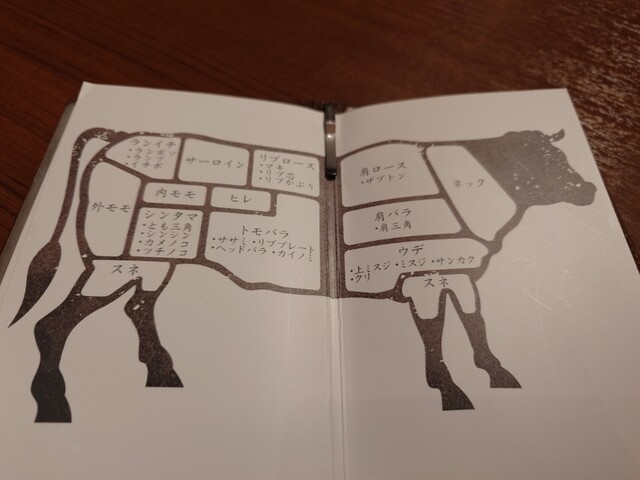 ランイチ
・ランボソ
・ランプ
・イチボ
サーロイン
リブロース
・マキ
・リブ芯
・リブかぶり
内モモ
ヒレ
外モモ
シンタマ
・とも三角
・シンシン
・カメノコ
・ツチノコ
トモバラ
・ササミ・リブプレート
・ヘッドバラ・カイノミ
スネ
肩ロース
・ザブトン
ネック
肩バラ
・肩三角
ウデ
・上ミスジ・ミスジ・サンカク
・クリ
スネ